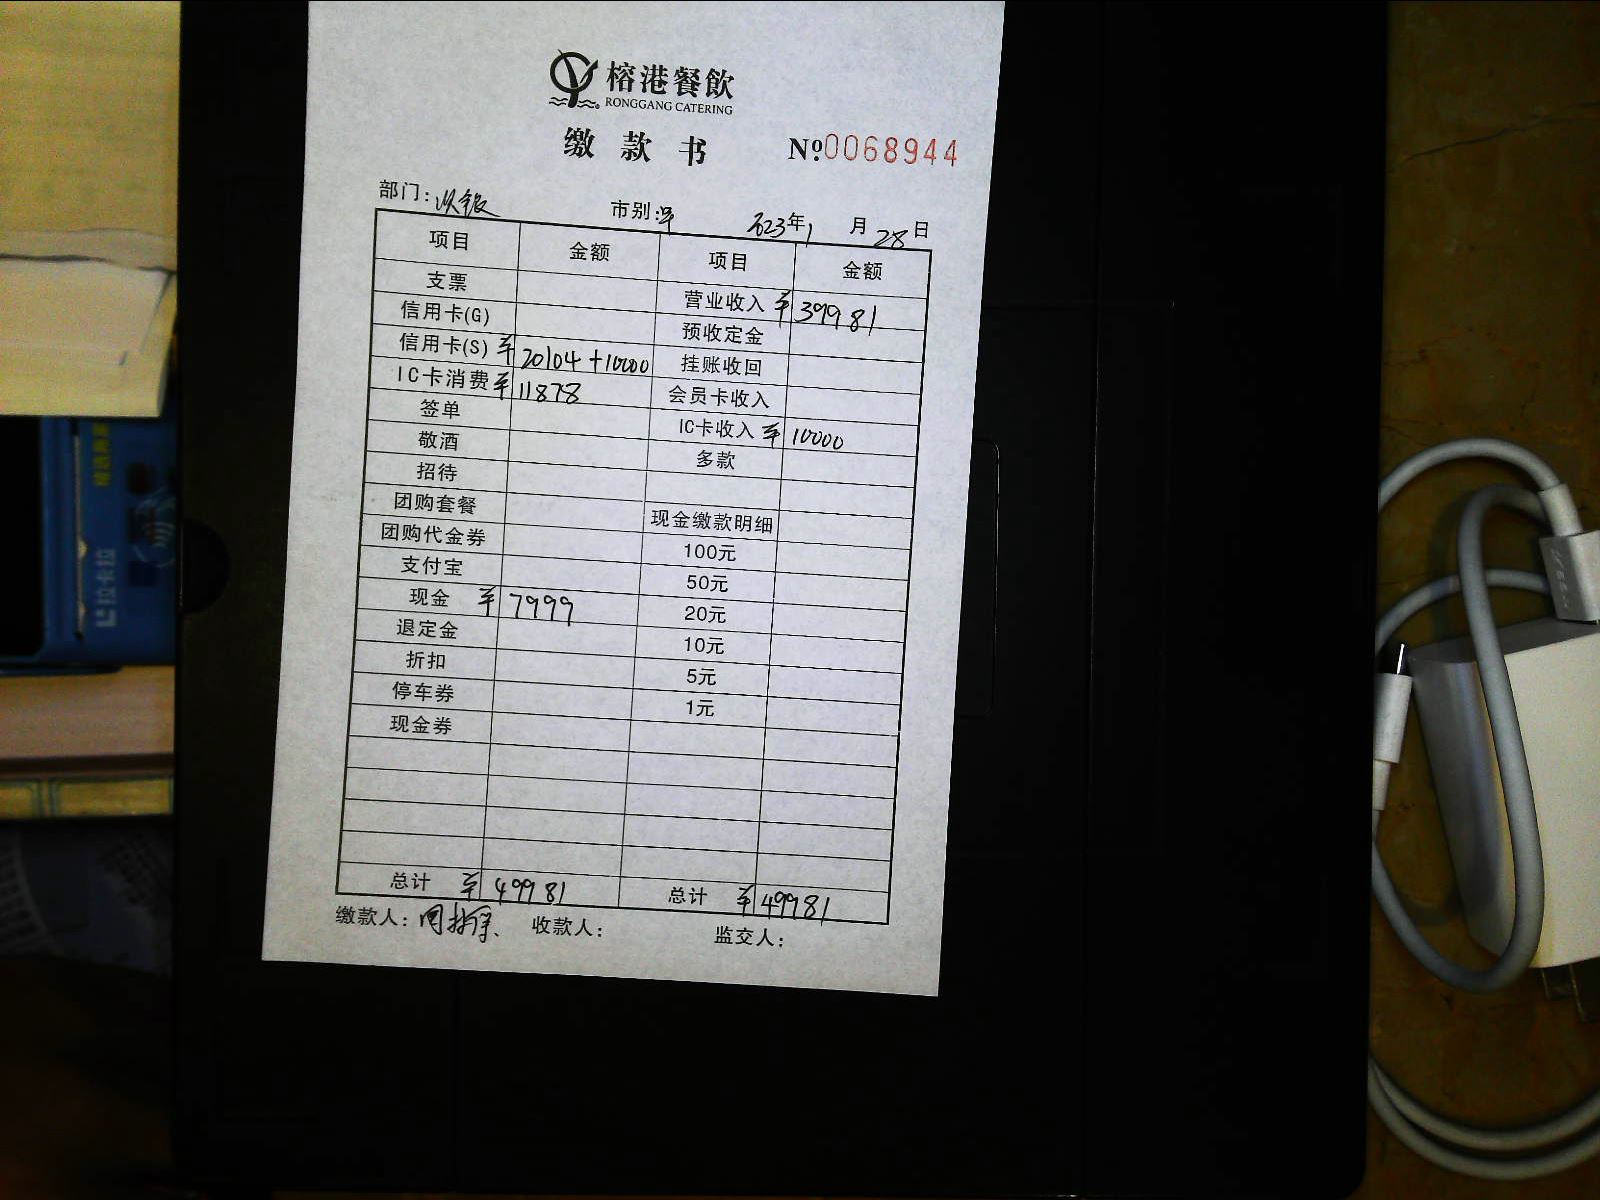 榕港餐飲
RONGGANG CATERING
缴款书 №0068944
部门: 收银 市别: 2023年1月28日
项目 金额 项目 金额
支票 营业收入 ¥39981
信用卡(G) 预收定金
信用卡(S) ¥20104+10000 挂账收回
IC卡消费 ¥11878 会员卡收入
签单 IC卡收入 ¥10000
敬酒 多款
招待
团购套餐 现金缴款明细
团购代金券 100元
支付宝 50元
现金 ¥7999 20元
退定金 10元
折扣 5元
停车券 1元
现金券
总计 ¥49981 总计 ¥49981
缴款人: 收款人: 监交人:
拉卡拉